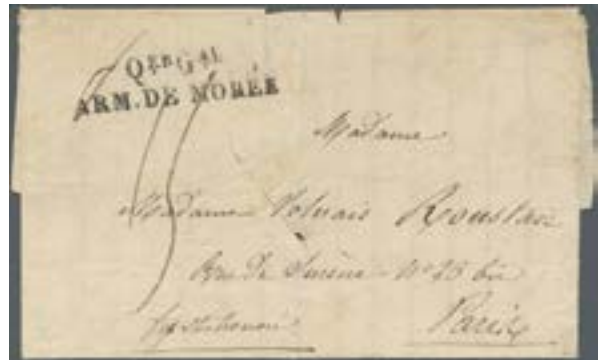 QER GAL
ARM. DE MORÉE
Madame
Madame Roustan
Rue de Surène N° 26 bis
Paris